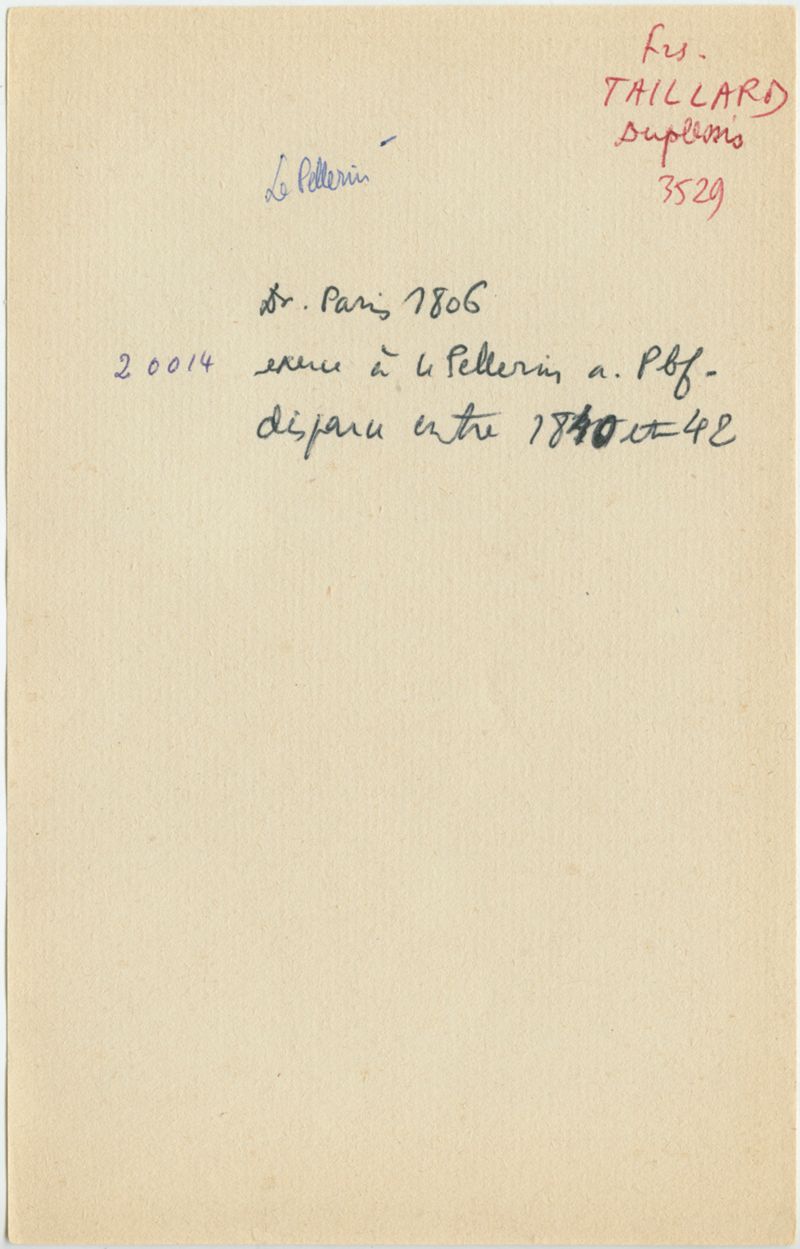 Frs.
TAILLARD
Duplessis
3529
Le Pellerin
Dr. Paris 1806
20014 exerce à le Pellerin a. Pbf.
disparu entre 1840 et 42